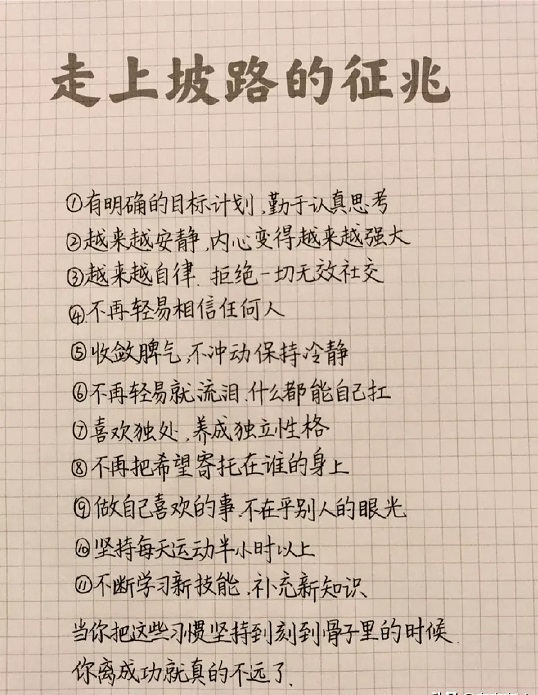 走上坡路的征兆
①有明确的目标计划,勤于认真思考
②越来越安静,内心变得越来越强大
③越来越自律.拒绝一切无效社交
④不再轻易相信任何人
⑤收敛脾气,不冲动保持冷静
⑥不再轻易就流泪.什么都能自己扛
⑦喜欢独处,养成独立性格
⑧不再把希望寄托在谁的身上
⑨做自己喜欢的事.不在乎别人的眼光
⑩坚持每天运动半小时以上
⑪不断学习新技能,补充新知识
当你把这些习惯坚持到刻到骨子里的时候.
你离成功就真的不远了.